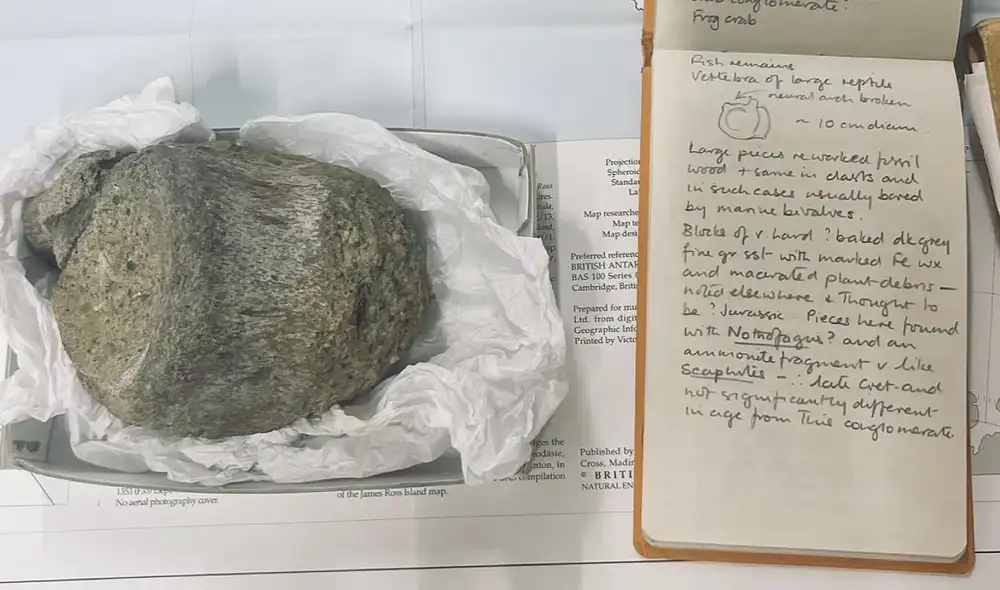 Frog crab
Fish remains
Vertebra of large reptile
neural arch broken
~ 10 cm diam.
Large pieces reworked fossil
wood + same in clasts and
in such cases usually bored
by marine bivalves.
Blocks of v. hard ? baked dk grey
fine gr sst with marked Fe wx
and macerated plant debris —
noted elsewhere & Thought to
be ? Jurassic. Pieces here found
with Nothofagus? and an
ammonite fragment v like
Scaphites — ∴ late Cret. and
not significantly different
in age from This conglomerate.
Projection
Spheroid
Standard
Map researche
Map te
Map desi
Preferred referenc
BRITISH ANTAR
BAS 100 Series
Cambridge, Briti
Prepared for mu
Ltd. from digit
Geographic Info
Printed by Victo
Ross
Published by
Cross, Madin
© BRITI
NATURAL EN
compilation
No aerial photography cover.
of the James Ross Island map.